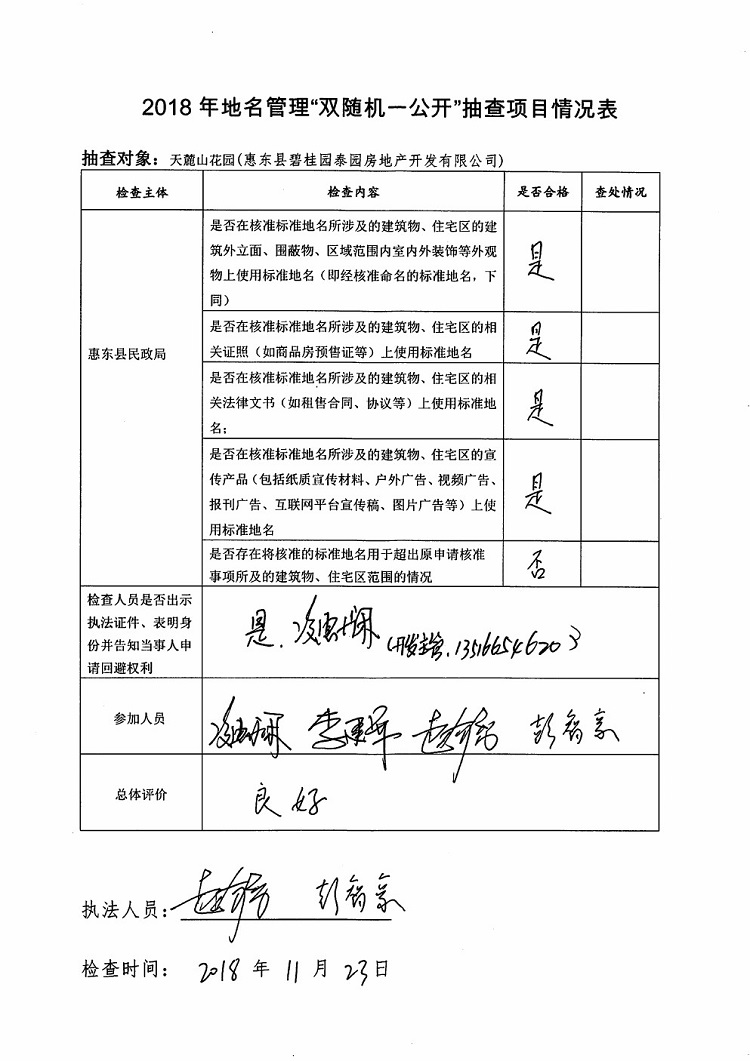 2018 年地名管理“双随机一公开”抽查项目情况表
抽查对象：天麓山花园(惠东县碧桂园泰园房地产开发有限公司)
检查主体 检查内容 是否合格 查处情况
惠东县民政局
是否在核准标准地名所涉及的建筑物、住宅区的建
筑外立面、围蔽物、区域范围内室内外装饰等外观
物上使用标准地名（即经核准命名的标准地名，下
同）
是
是否在核准标准地名所涉及的建筑物、住宅区的相
关证照（如商品房预售证等）上使用标准地名
是
是否在核准标准地名所涉及的建筑物、住宅区的相
关法律文书（如租售合同、协议等）上使用标准地
名；
是
是否在核准标准地名所涉及的建筑物、住宅区的宣
传产品（包括纸质宣传材料、户外广告、视频广告、
报刊广告、互联网平台宣传稿、图片广告等）上使
用标准地名
是
是否存在将核准的标准地名用于超出原申请核准
事项所及的建筑物、住宅区范围的情况
否
检查人员是否出示
执法证件、表明身
份并告知当事人申
请回避权利
是. 13516654620
参加人员
彭智豪
总体评价
良好
执法人员： 彭智豪
检查时间： 2018 年 11 月 23 日